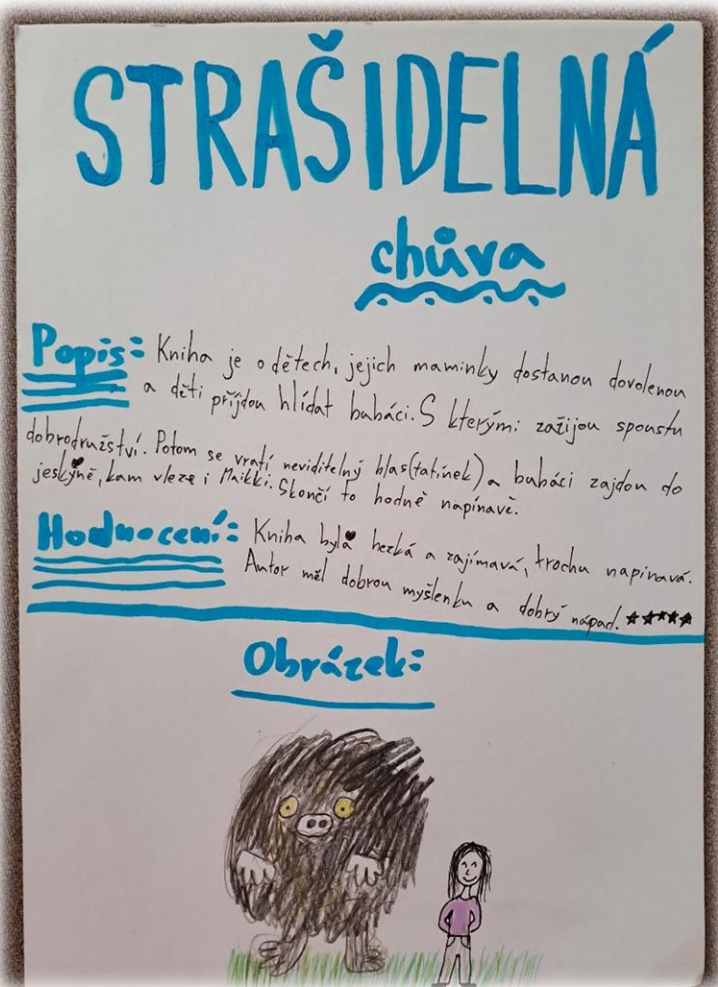 STRAŠIDELNÁ
chůva
Popis: Kniha je o dětech, jejich maminky dostanou dovolenou
a děti přijdou hlídat bubáci. S kterými zažijou spoustu
dobrodružství. Potom se vratí neviditelný hlas (tatínek) a bubáci zajdou do
jeskyně, kam vleze i Maikki. Skončí to hodně napínavě.
Hodnocení: Kniha byla hezká a zajímavá, trochu napínavá.
Autor měl dobrou myšlenku a dobrý nápad. ★★★★★
Obrázek: